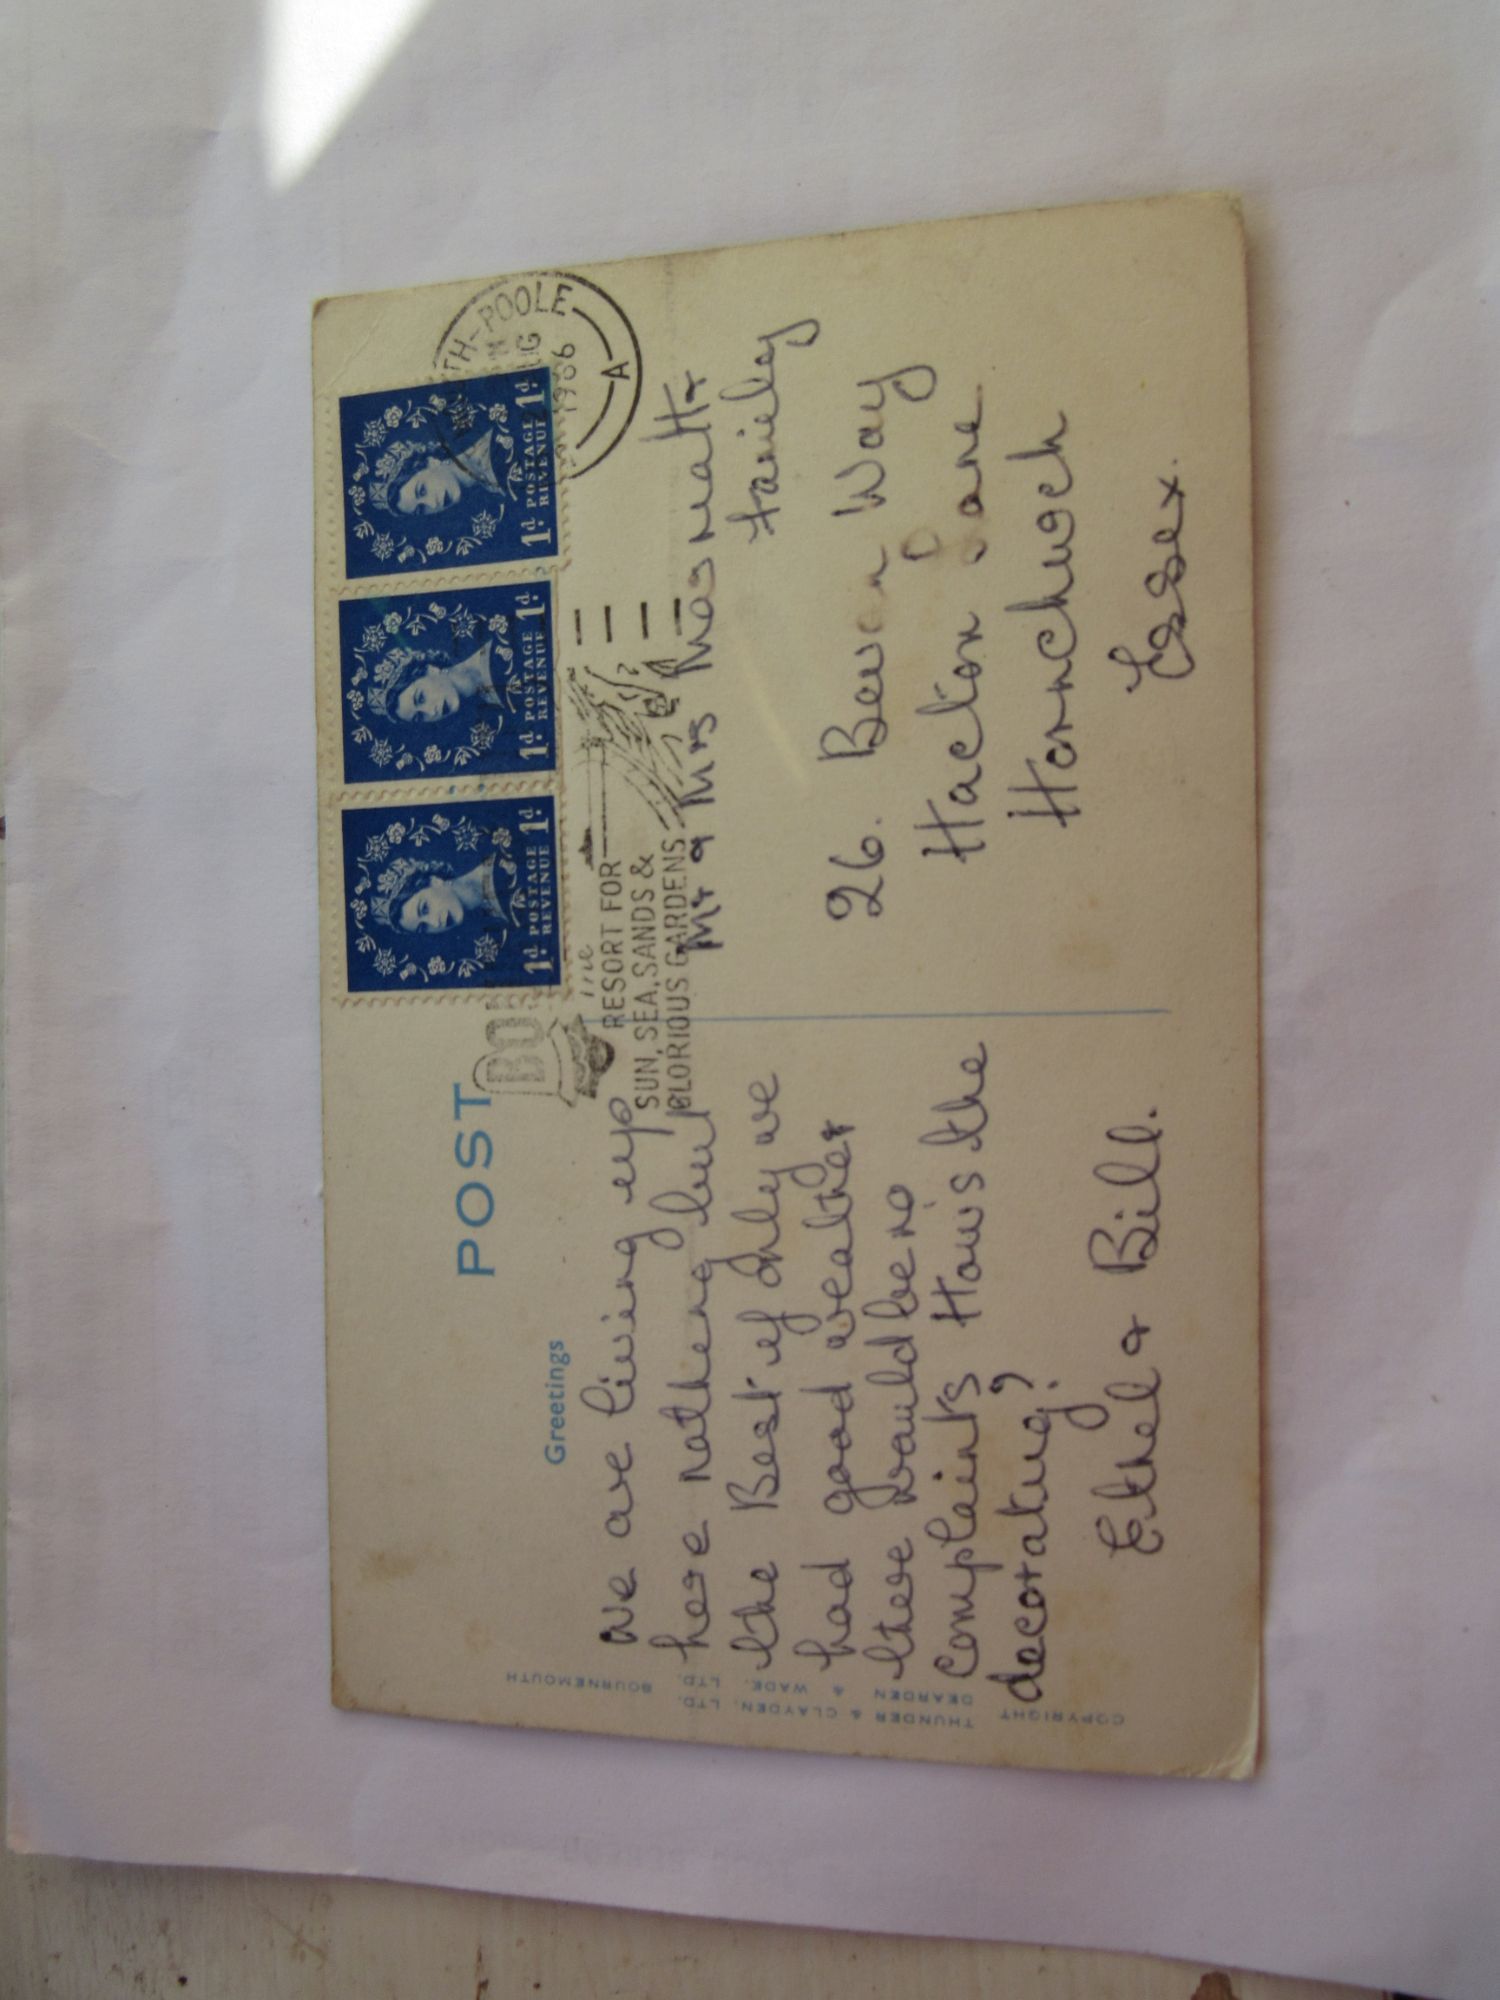 POST
Greetings
We are living up
here nothing but
the Best if only we
had good weather
there would be no
complaints How's the
decorating?
Ethel & Bill.
COPYRIGHT
THUNDER & CLAYDEN, LTD.
DEARDEN & WADE, LTD. BOURNEMOUTH
1d. POSTAGE REVENUE 1d.
1d. POSTAGE REVENUE 1d.
1d. POSTAGE REVENUE 1d.
TH-POOLE
1966
A
the
RESORT FOR
SUN, SEA, SANDS &
GLORIOUS GARDENS
Mr & Mrs &
family
26. Way
Hacton Lane
Hornchurch
Essex.